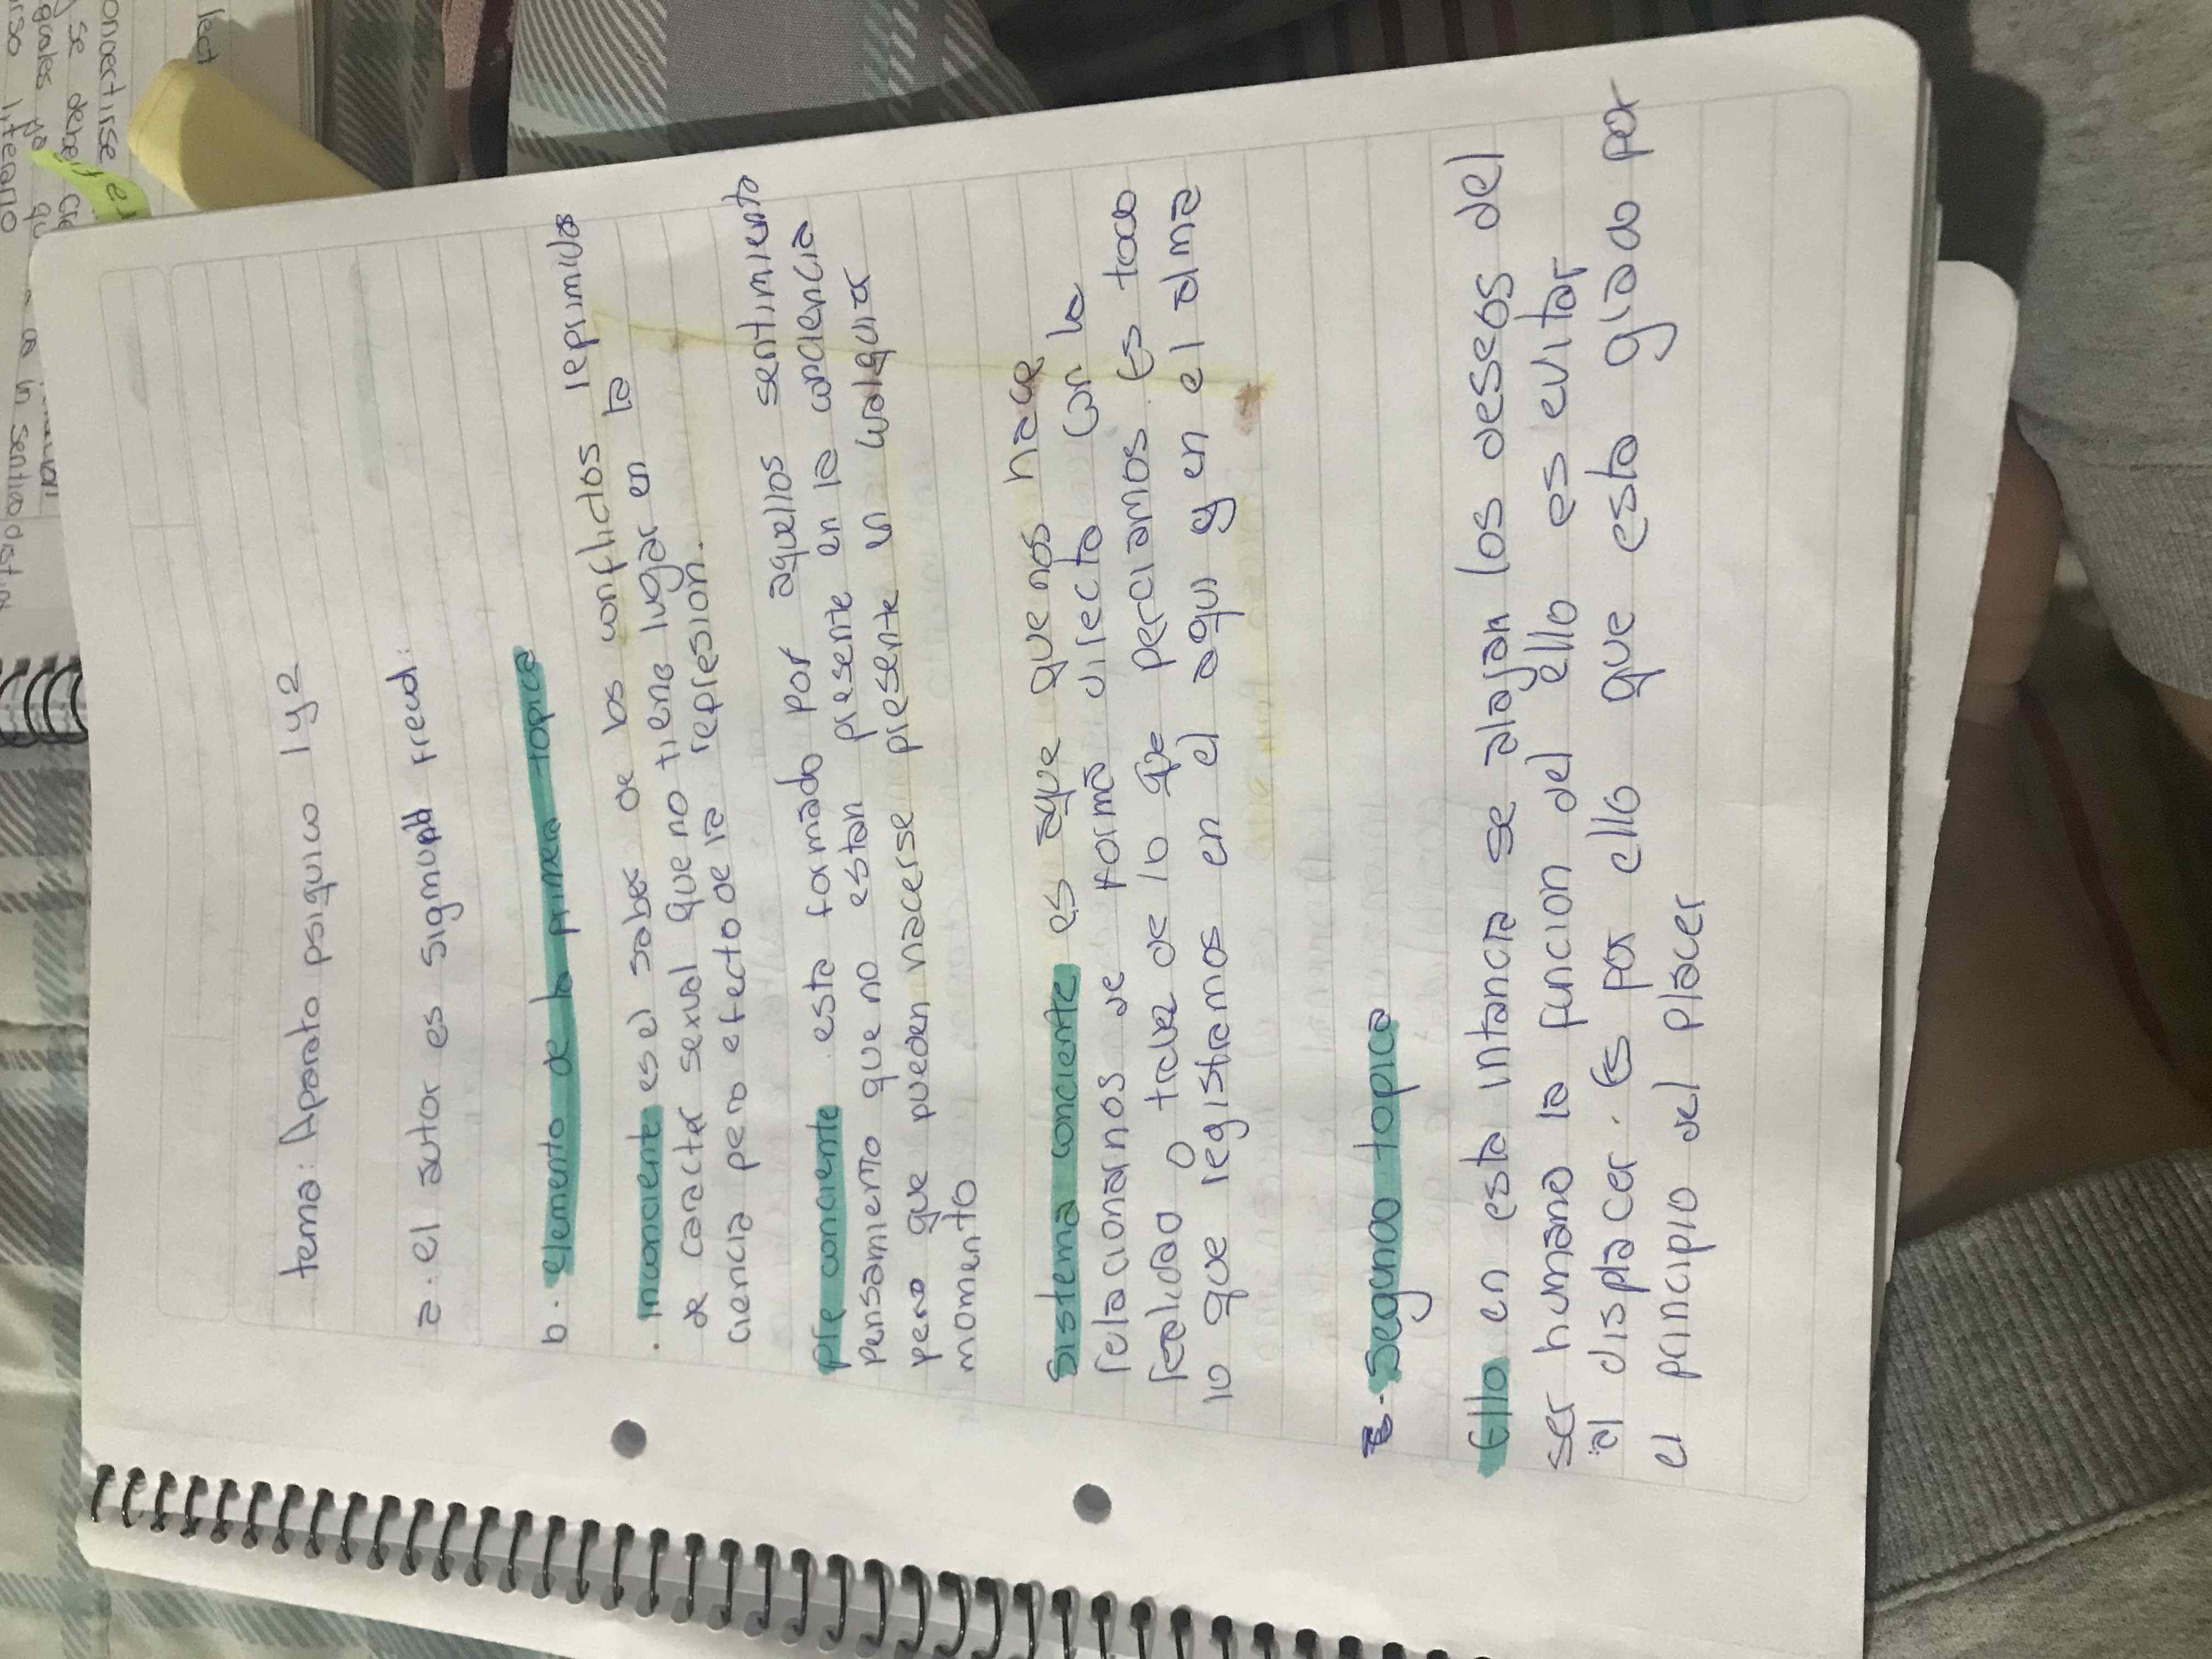 tema: Aparato psiquico 1y2
a. el autor es sigmund Freud:
b. elemento de la primera topica
. Inconciente es el saber de los conflictos reprimidos
de caracter sexual que no tiene lugar en la
ciencia pero efecto de la represion.
pre conciente esta formado por aquellos sentimiento
pensamiento que no estan presente en la conciencia
pero que pueden hacerse presente en cualquier
momento
Sistema conciente es aque que nos hace
relacionarnos de forma directa con la
realidad o trata de lo que perciamos. Es todo
lo que registramos en el aqui y en el alma
segundo topica
Ello en esta intancia se alojan los deseos del
ser humano la funcion del ello es evitar
al displacer. Es por ello que esta giado por
el principio del placer
lect
onvertirse
se deben
iguales
in sentido
literario